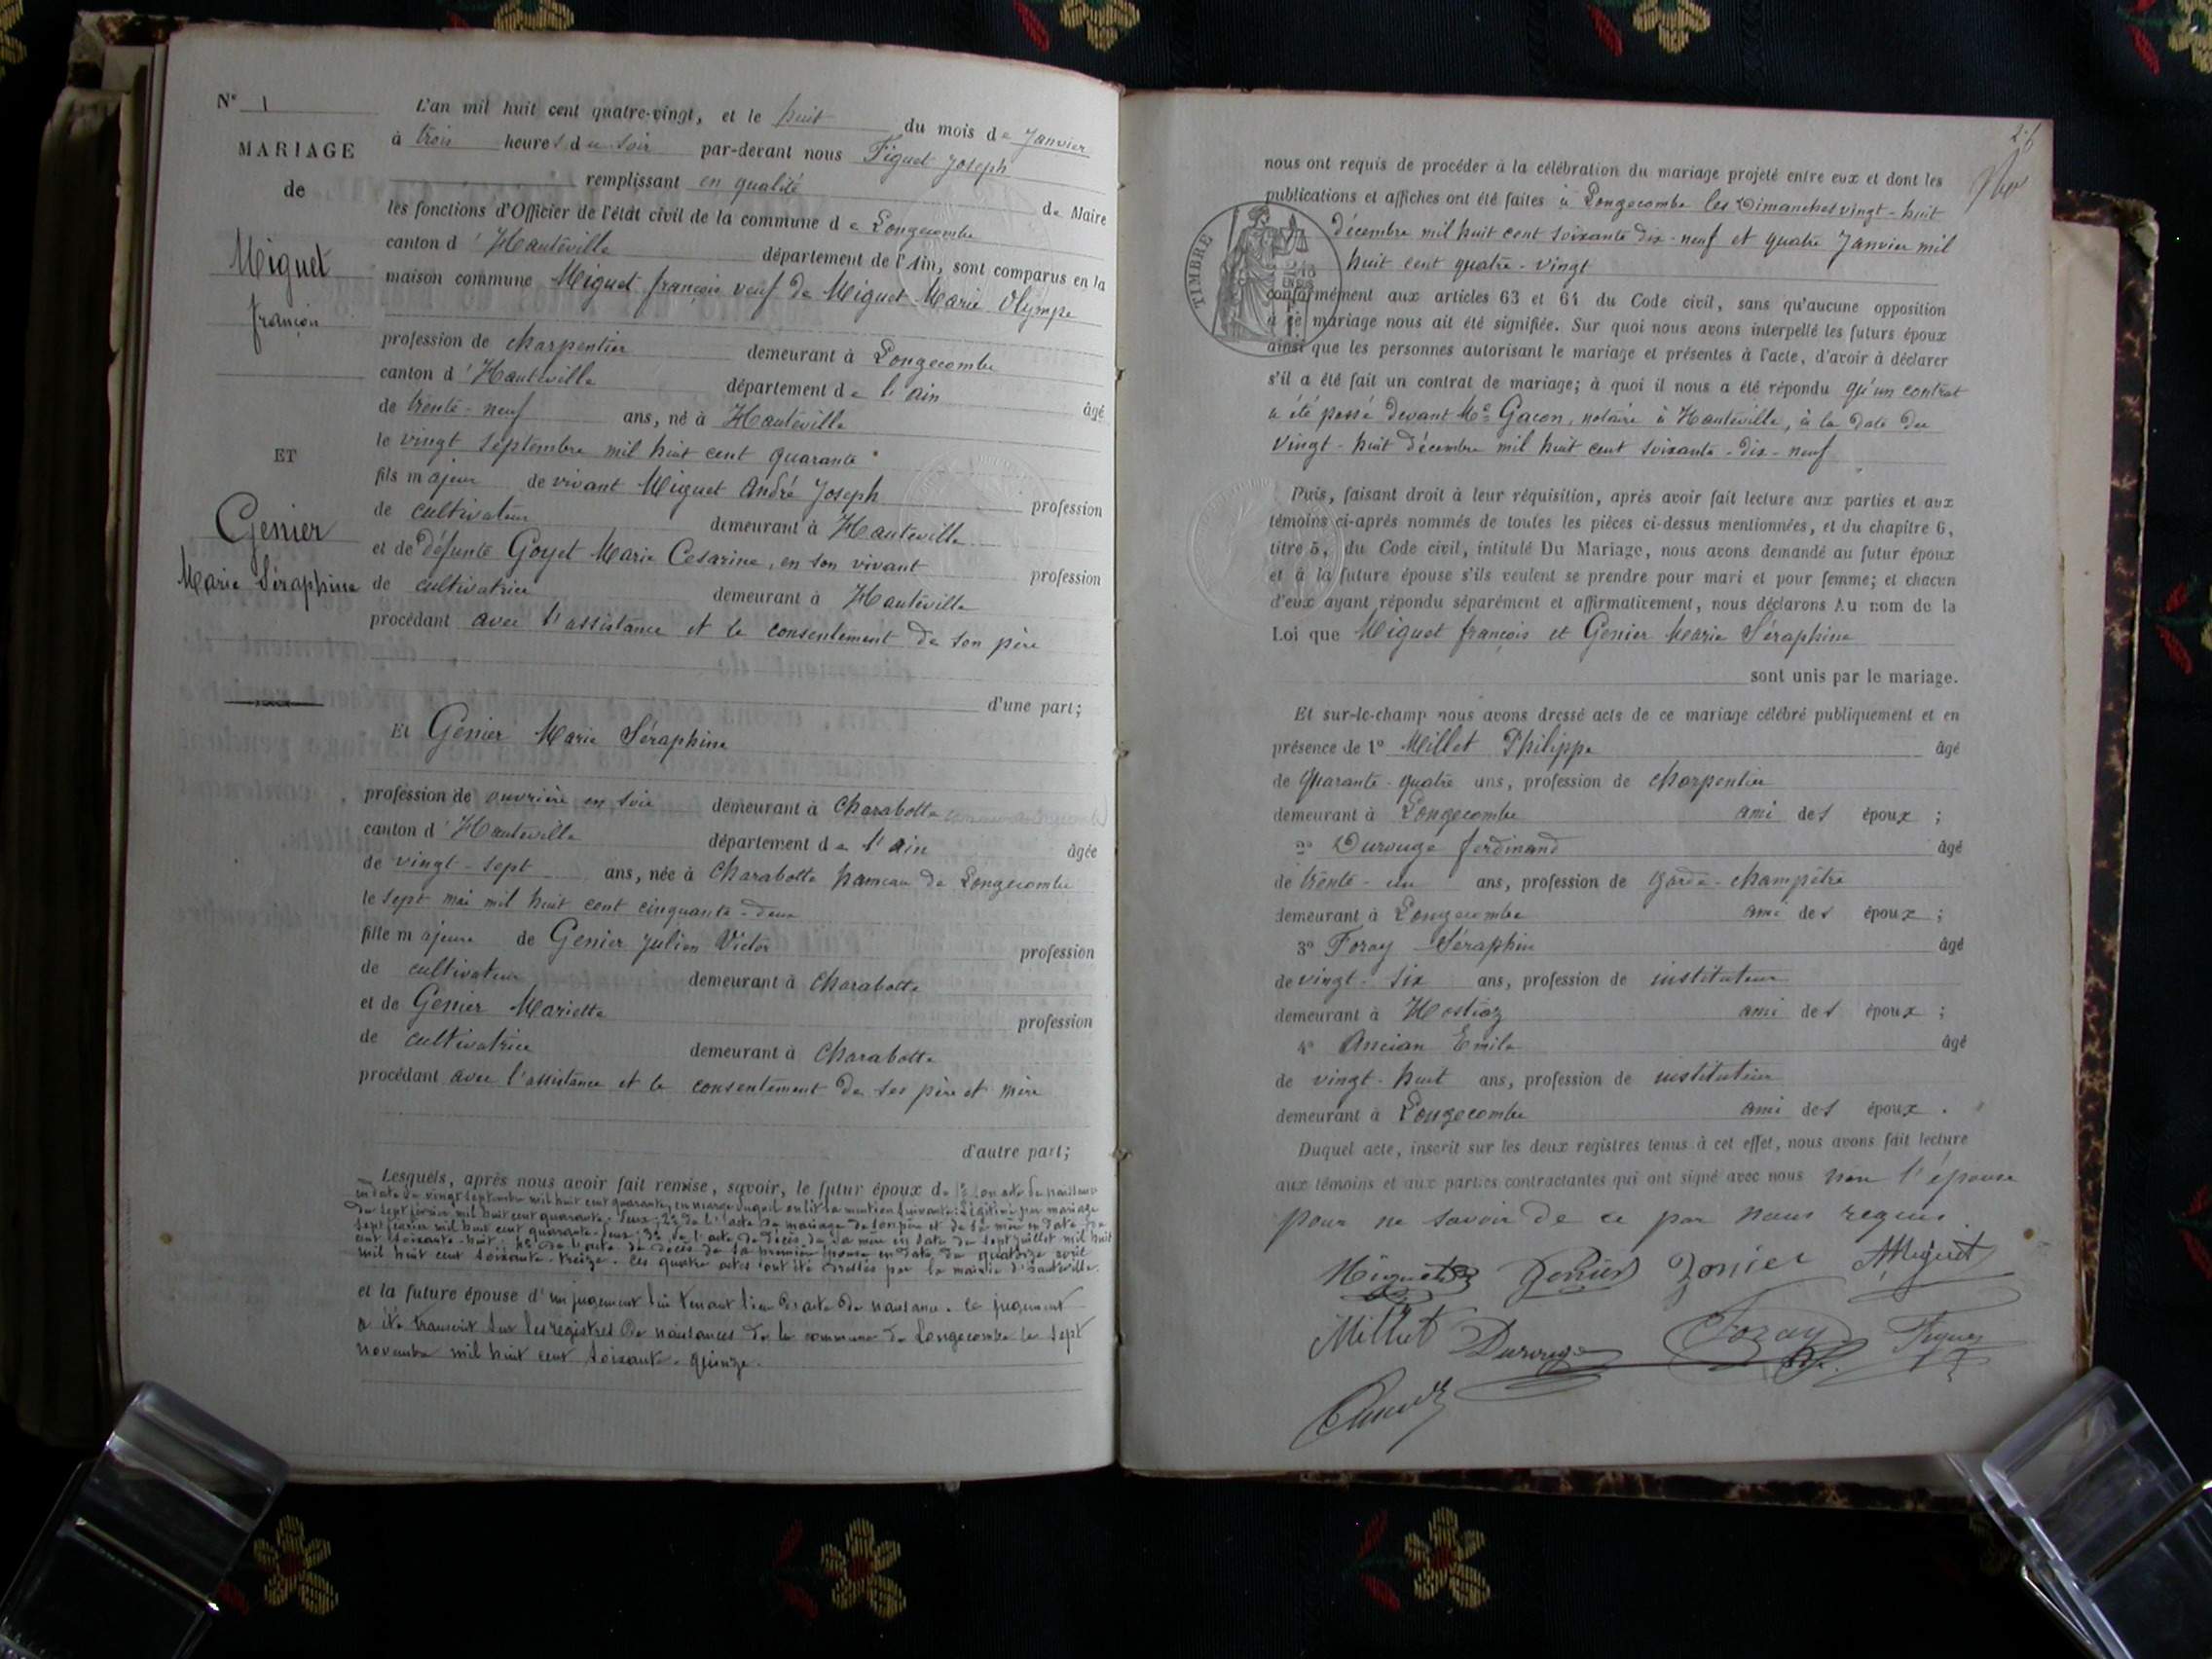 N° 1
MARIAGE
de
Miguet
françois
ET
Genier
Marie Séraphine
L'an mil huit cent quatre-vingt, et le huit du mois de Janvier
à trois heures du soir par-devant nous Figuet Joseph
remplissant en qualité de Maire
les fonctions d'Officier de l'état civil de la commune de Longecombe
canton d'Hauteville département de l'Ain, sont comparus en la
maison commune Miguet françois veuf de Miguet Marie Olympe
profession de charpentier demeurant à Longecombe
canton d'Hauteville département de l'ain âgé
de trente-neuf ans, né à Hauteville
le vingt septembre mil huit cent quarante
fils majeur de vivant Miguet André Joseph profession
de cultivateur demeurant à Hauteville
et de défunte Goyet Marie Cesarine, en son vivant profession
de cultivatrice demeurant à Hauteville
procédant avec l'assistance et le consentement de son père
d'une part;
Et Genier Marie Séraphine
profession de ouvrière en soie demeurant à Charabotte
canton d'Hauteville département de l'ain âgée
de vingt-sept ans, née à Charabotte hameau de Longecombe
le sept mai mil huit cent cinquante-deux
fille majeure de Genier Julien Victor profession
de cultivateur demeurant à Charabotte
et de Genier Mariette profession
de cultivatrice demeurant à Charabotte
procédant avec l'assistance et le consentement de ses père et mère
d'autre part;
Lesquels, après nous avoir fait remise, savoir, le futur époux de 1° son acte de naissance
en date du vingt septembre mil huit cent quarante, en marge duquel on lit la mention suivante: Légitimé par mariage
du sept février mil huit cent quarante-deux; 2° de l'acte de mariage de son père et de sa mère en date du
sept février mil huit cent quarante-deux; 3° de l'acte de décès de sa mère en date du sept juillet mil huit
cent soixante-huit; 4° de l'acte de décès de sa première épouse en date du quatorze avril
mil huit cent soixante-treize. Ces quatre actes ont été dressés par la mairie d'Hauteville.
et la future épouse d'un jugement lui tenant lieu d'acte de naissance. Ce jugement
a été transcrit sur les registres de naissances de la commune de Longecombe le sept
novembre mil huit cent soixante-quinze.
nous ont requis de procéder à la célébration du mariage projeté entre eux et dont les
publications et affiches ont été faites à Longecombe les Dimanches vingt-huit
décembre mil huit cent soixante dix-neuf et quatre Janvier mil
huit cent quatre-vingt
TIMBRE
conformément aux articles 63 et 64 du Code civil, sans qu'aucune opposition
à ce mariage nous ait été signifiée. Sur quoi nous avons interpellé les futurs époux
ainsi que les personnes autorisant le mariage et présentes à l'acte, d'avoir à déclarer
s'il a été fait un contrat de mariage; à quoi il nous a été répondu qu'un contrat
a été passé devant Me Gacon, notaire à Hauteville, à la date du
vingt-huit décembre mil huit cent soixante-dix-neuf
Puis, faisant droit à leur réquisition, après avoir fait lecture aux parties et aux
témoins ci-après nommés de toutes les pièces ci-dessus mentionnées, et du chapitre 6,
titre 5, du Code civil, intitulé Du Mariage, nous avons demandé au futur époux
et à la future épouse s'ils veulent se prendre pour mari et pour femme; et chacun
d'eux ayant répondu séparément et affirmativement, nous déclarons Au nom de la
Loi que Miguet françois et Genier Marie Séraphine
sont unis par le mariage.
Et sur-le-champ nous avons dressé acts de ce mariage célébré publiquement et en
présence de 1° Millet Philippe âgé
de quarante-quatre ans, profession de charpentier
demeurant à Longecombe ami des époux ;
2° Durouge ferdinand âgé
de trente-un ans, profession de garde-champêtre
demeurant à Longecombe ami des époux ;
3° Foray Séraphin âgé
de vingt-six ans, profession de instituteur
demeurant à Hostiaz ami des époux ;
4° Ancian Emile âgé
de vingt-huit ans, profession de instituteur
demeurant à Longecombe ami des époux .
Duquel acte, inscrit sur les deux registres tenus à cet effet, nous avons fait lecture
aux témoins et aux parties contractantes qui ont signé avec nous non l'épouse
pour ne savoir de ce par nous requis.
Miguet Genier Genier Miguet
Millet Durouge Foray Figuet